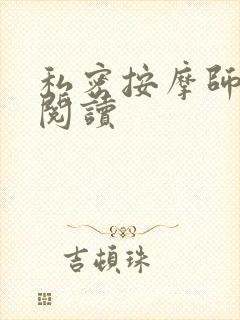 私密按摩師
閱讀
吉頓珠